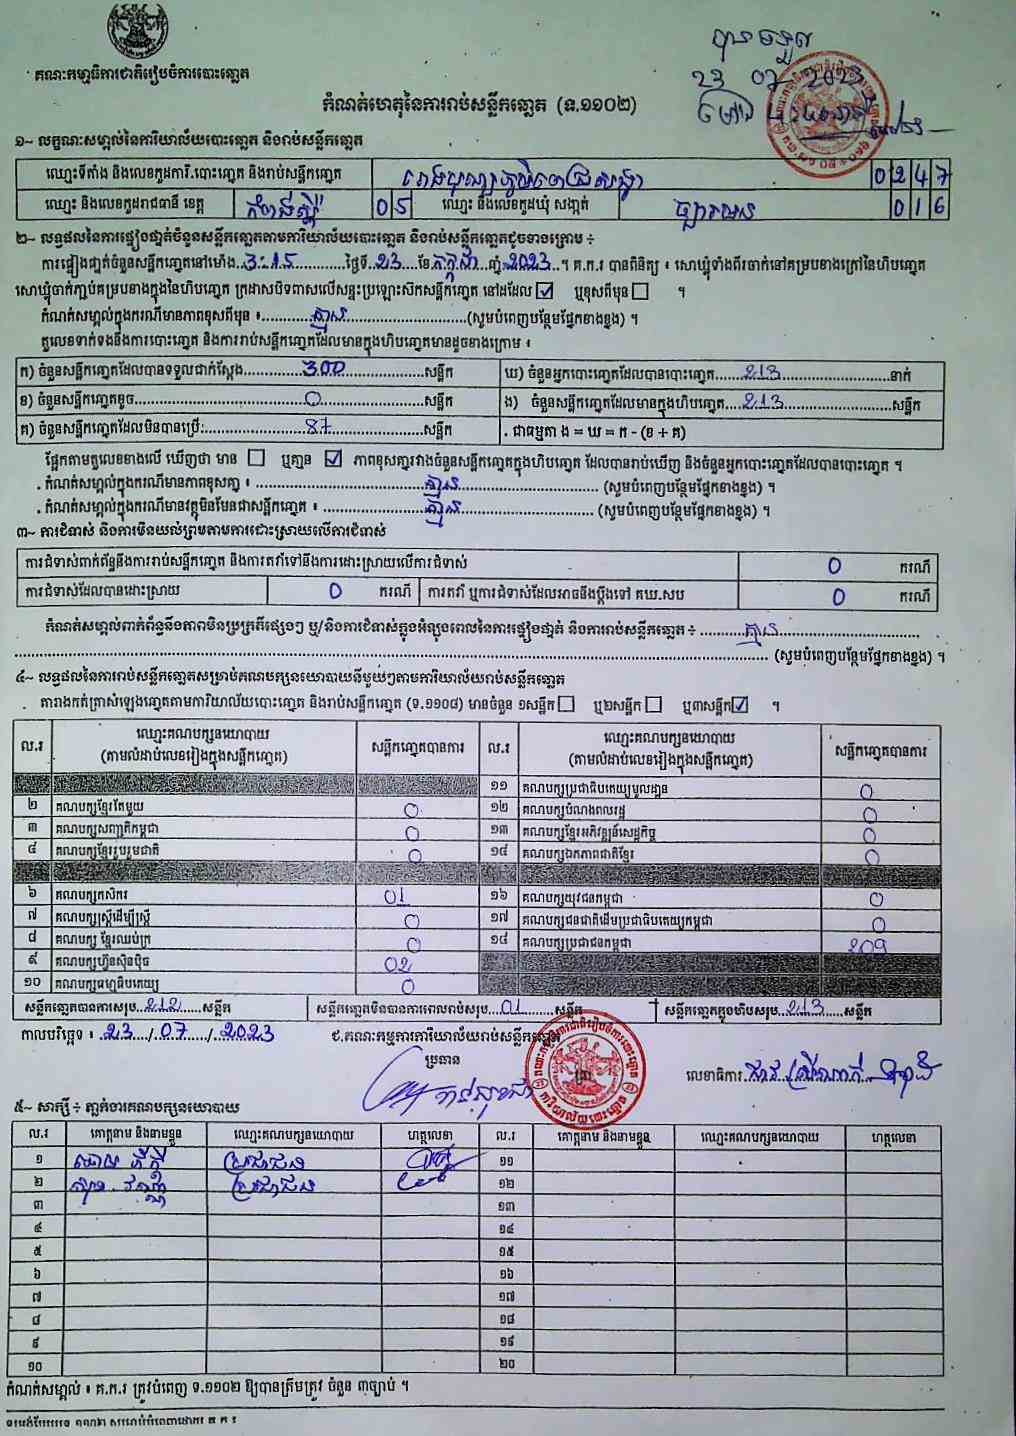 បានទទួល
23 07 2023
ម៉ោង
គណៈកម្មាធិការជាតិរៀបចំការបោះឆ្នោត
កំណត់ហេតុនៃការរាប់សន្លឹកឆ្នោត (ទ.១១០២)
១~ លក្ខណៈសម្គាល់នៃការិយាល័យបោះឆ្នោត និងរាប់សន្លឹកឆ្នោត
ឈ្មោះទីតាំង និងលេខកូដការិ.បោះឆ្នោត និងរាប់សន្លឹកឆ្នោត 0247
ឈ្មោះ និងលេខកូដរាជធានី ខេត្ត កំពង់ស្ពឺ 05 ឈ្មោះ និងលេខកូដឃុំ សង្កាត់ 016
២~ លទ្ធផលនៃការផ្ទៀងផ្ទាត់ចំនួនសន្លឹកឆ្នោតតាមការិយាល័យបោះឆ្នោត និងរាប់សន្លឹកឆ្នោតដូចខាងក្រោម ÷
ការផ្ទៀងផ្ទាត់ចំនួនសន្លឹកឆ្នោតនៅម៉ោង..3:15......ថ្ងៃទី.23...ខែ.កក្កដា..ឆ្នាំ.2023..។ គ.ក.រ បានពិនិត្យ ៖ សោឃ្លុំទាំងពីរចាក់នៅគម្របខាងក្រៅនៃហិបឆ្នោត
សោឃ្លុំចាក់ភ្ជាប់គម្របខាងក្នុងនៃហិបឆ្នោត ក្រដាសបិទពាសលើសន្ទះប្រឡោះស៊កសន្លឹកឆ្នោត នៅដដែល ☑ ឬខុសពីមុន ☐ ។
កំណត់សម្គាល់ក្នុងករណីមានភាពខុសពីមុន ៖......គ្មាន......(សូមបំពេញបន្ថែមផ្នែកខាងខ្នង) ។
តួលេខទាក់ទងនឹងការបោះឆ្នោត និងការរាប់សន្លឹកឆ្នោតដែលមានក្នុងហិបឆ្នោតមានដូចខាងក្រោម ៖
ក) ចំនួនសន្លឹកឆ្នោតដែលបានទទួលជាក់ស្តែង......300......សន្លឹក ឃ) ចំនួនអ្នកបោះឆ្នោតដែលបានបោះឆ្នោត......213......នាក់
ខ) ចំនួនសន្លឹកឆ្នោតខូច......0......សន្លឹក ង) ចំនួនសន្លឹកឆ្នោតដែលមានក្នុងហិបឆ្នោត....213......សន្លឹក
គ) ចំនួនសន្លឹកឆ្នោតដែលមិនបានប្រើ:......87......សន្លឹក . ជាធម្មតា ង = ឃ = ក - (ខ + គ)
ផ្អែកតាមតួលេខខាងលើ ឃើញថា មាន ☐ ឬគ្មាន ☑ ភាពខុសគ្នារវាងចំនួនសន្លឹកឆ្នោតក្នុងហិបឆ្នោត ដែលបានរាប់ឃើញ និងចំនួនអ្នកបោះឆ្នោតដែលបានបោះឆ្នោត ។
. កំណត់សម្គាល់ក្នុងករណីមានភាពខុសគ្នា ៖ ......គ្មាន...... (សូមបំពេញបន្ថែមផ្នែកខាងខ្នង) ។
. កំណត់សម្គាល់ក្នុងករណីមានវត្ថុមិនមែនជាសន្លឹកឆ្នោត ៖ ......គ្មាន...... (សូមបំពេញបន្ថែមផ្នែកខាងខ្នង) ។
៣~ ការជំទាស់ និងការមិនយល់ព្រមតាមការដោះស្រាយលើការជំទាស់
ការជំទាស់ពាក់ព័ន្ធនឹងការរាប់សន្លឹកឆ្នោត និងការតវ៉ាទៅនឹងការដោះស្រាយលើការជំទាស់ 0 ករណី
ការជំទាស់ដែលបានដោះស្រាយ 0 ករណី ការតវ៉ា ឬការជំទាស់ដែលអាចនឹងប្តឹងទៅ គឃ.សប 0 ករណី
កំណត់សម្គាល់ពាក់ព័ន្ធនឹងភាពមិនប្រក្រតីផ្សេងៗ ឬ/និងការជំទាស់ក្នុងអំឡុងពេលនៃការផ្ទៀងផ្ទាត់ និងការរាប់សន្លឹកឆ្នោត ÷ ......គ្មាន......
...... (សូមបំពេញបន្ថែមផ្នែកខាងខ្នង) ។
៤~ លទ្ធផលនៃការរាប់សន្លឹកឆ្នោតសម្រាប់គណបក្សនយោបាយនីមួយៗតាមការិយាល័យរាប់សន្លឹកឆ្នោត
តារាងកត់ត្រាសំឡេងឆ្នោតតាមការិយាល័យបោះឆ្នោត និងរាប់សន្លឹកឆ្នោត (ទ.១១០៨) មានចំនួន ១សន្លឹក ☐ ឬ២សន្លឹក ☐ ឬ៣សន្លឹក ☑ ។
ល.រ ឈ្មោះគណបក្សនយោបាយ (តាមលំដាប់លេខរៀងក្នុងសន្លឹកឆ្នោត) សន្លឹកឆ្នោតបានការ ល.រ ឈ្មោះគណបក្សនយោបាយ (តាមលំដាប់លេខរៀងក្នុងសន្លឹកឆ្នោត) សន្លឹកឆ្នោតបានការ
១១ គណបក្សប្រជាធិបតេយ្យមូលដ្ឋាន 0
២ គណបក្សខ្មែរតែមួយ 0 ១២ គណបក្សបំណងពលរដ្ឋ 0
៣ គណបក្សសញ្ជាតិកម្ពុជា 0 ១៣ គណបក្សខ្មែរអភិវឌ្ឍន៍សេដ្ឋកិច្ច 0
៤ គណបក្សខ្មែររួបរួមជាតិ 0 ១៤ គណបក្សឯកភាពជាតិខ្មែរ 0
៦ គណបក្សកសិករ 01 ១៦ គណបក្សយុវជនកម្ពុជា 0
៧ គណបក្សស្ត្រីដើម្បីស្ត្រី 0 ១៧ គណបក្សជនជាតិដើមប្រជាធិបតេយ្យកម្ពុជា 0
៨ គណបក្ស ខ្មែរឈប់ក្រ 0 ១៨ គណបក្សប្រជាជនកម្ពុជា 209
៩ គណបក្សហ៊្វុនស៊ិនប៉ិច 02
១០ គណបក្សធម្មាធិបតេយ្យ 0
សន្លឹកឆ្នោតបានការសរុប..212....សន្លឹក សន្លឹកឆ្នោតមិនបានការពេលរាប់សរុប...01......សន្លឹក សន្លឹកឆ្នោតក្នុងហិបសរុប..213...សន្លឹក
កាលបរិច្ឆេទ ៖ .23..../.07....../..2023 ជ.គណៈកម្មការការិយាល័យរាប់សន្លឹកឆ្នោត
ប្រធាន ត្រា
លេខាធិការ
៥~ សាក្សី ÷ ភ្នាក់ងារគណបក្សនយោបាយ
ល.រ គោត្តនាម និងនាមខ្លួន ឈ្មោះគណបក្សនយោបាយ ហត្ថលេខា ល.រ គោត្តនាម និងនាមខ្លួន ឈ្មោះគណបក្សនយោបាយ ហត្ថលេខា
១ ប្រជាជន ១១
២ ប្រជាជន ១២
៣ ១៣
៤ ១៤
៥ ១៥
៦ ១៦
៧ ១៧
៨ ១៨
៩ ១៩
១០ ២០
កំណត់សម្គាល់ ៖ គ.ក.រ ត្រូវបំពេញ ទ.១១០២ ឱ្យបានត្រឹមត្រូវ ចំនួន ៣ច្បាប់ ។